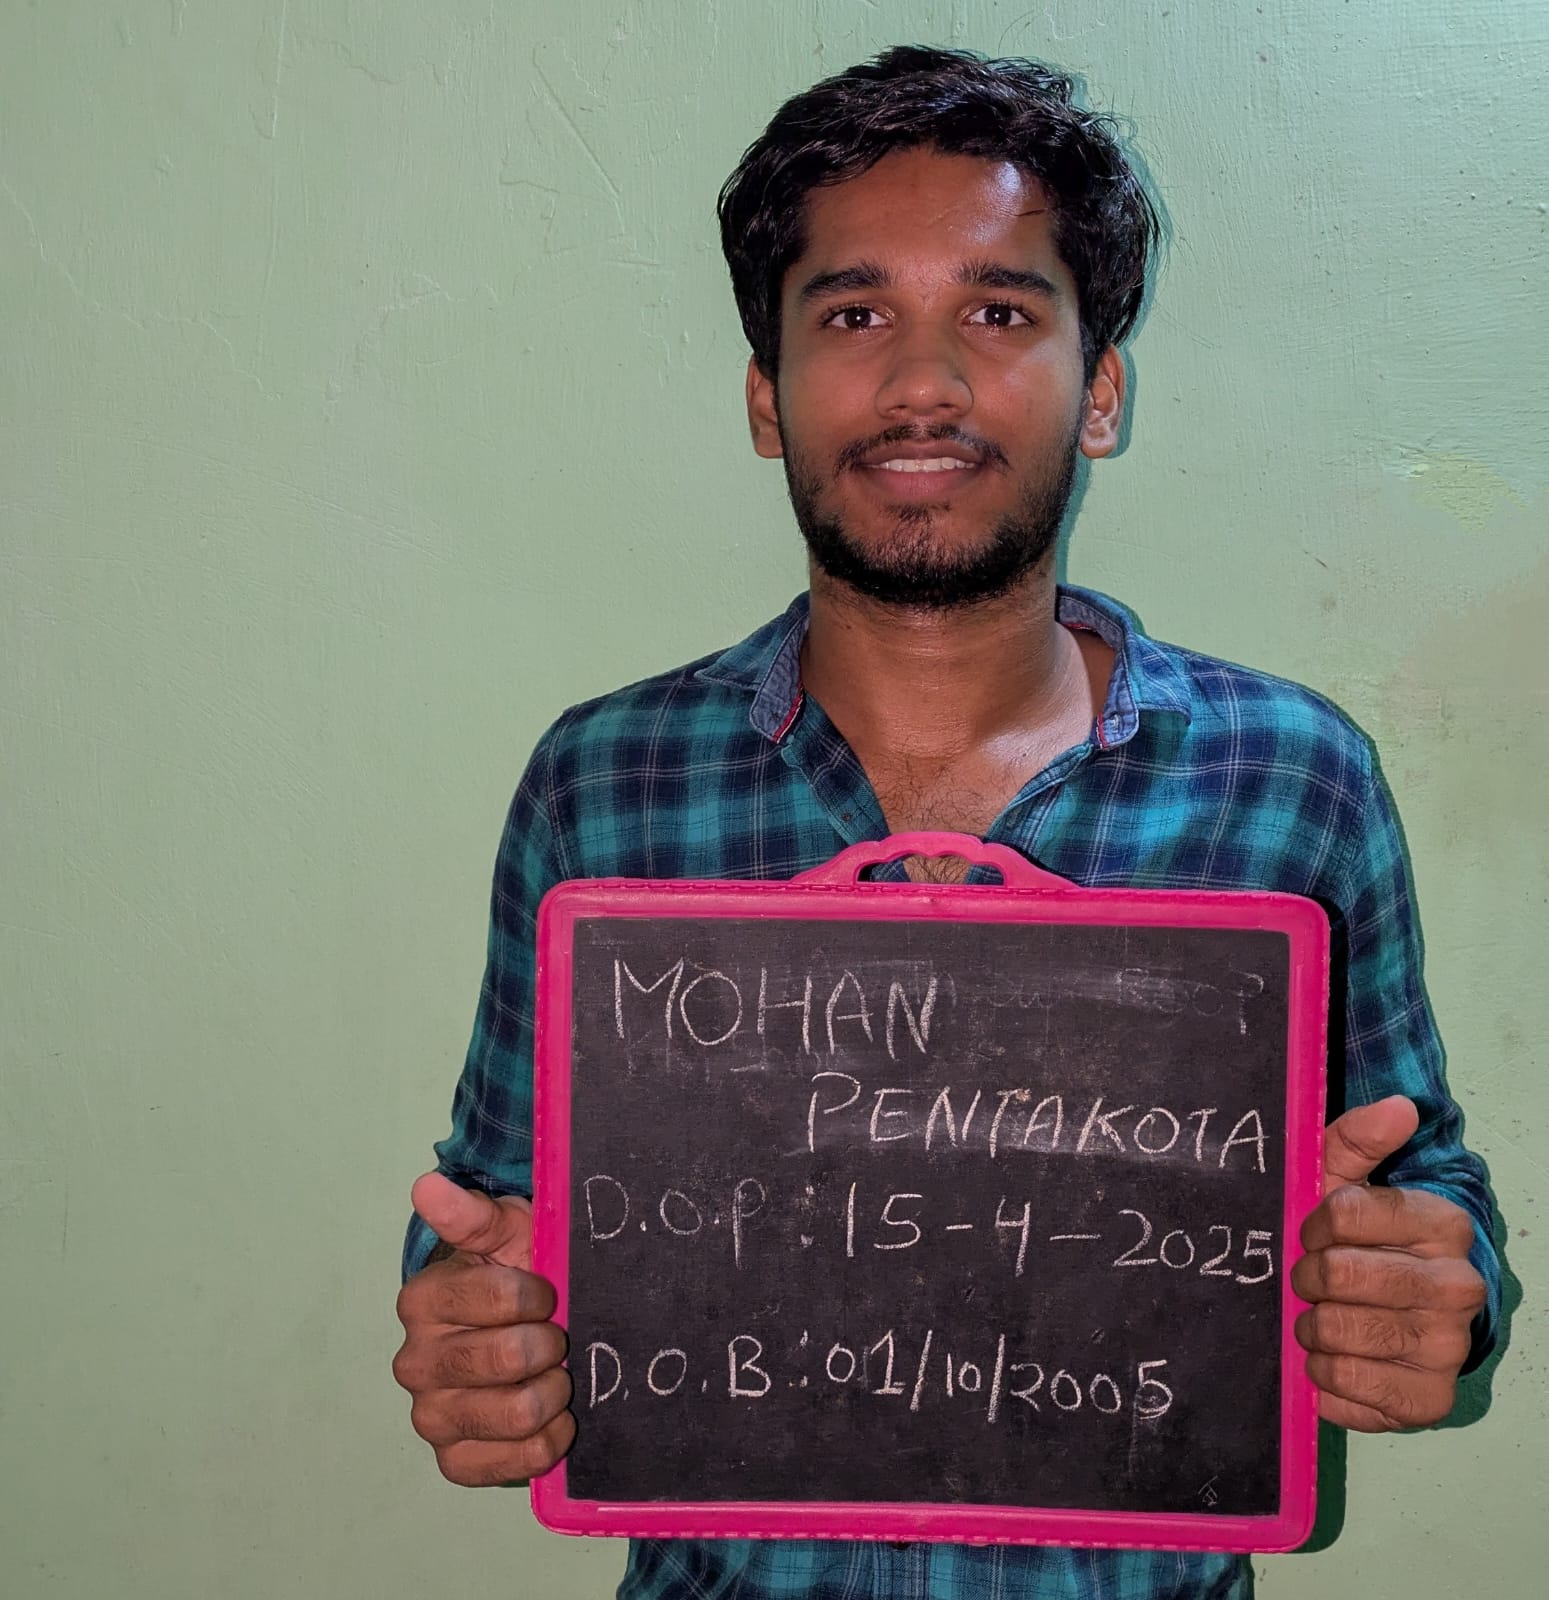 MOHAN
PENTAKOTA
D.O.P : 15-4-2025
D.O.B : 01/10/2005